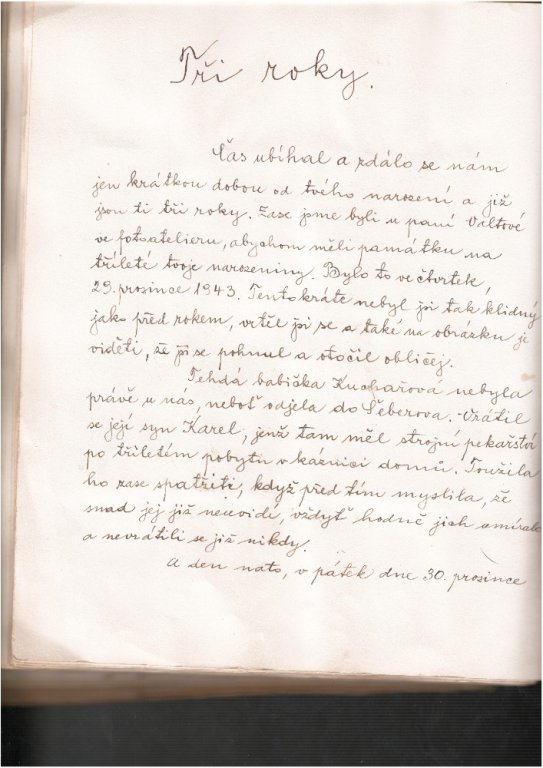 Tři roky.
Čas ubíhal a zdálo se nám
jen krátkou dobou od tvého narození a již
jsou ti tři roky. Zase jsme byli u paní Valtové
ve fotoatelieru, abychom měli památku na
tříleté tvoje narozeniny. Bylo to ve čtvrtek,
29. prosince 1943. Tentokráte nebyl jsi tak klidný
jako před rokem, vrtěl jsi se a také na obrázku je
viděti, že jsi se pohnul a otočil obličej.
Tehdá babička Kuchařová nebyla
právě u nás, neboť odjela do Šeberova. Vrátil
se její syn Karel, jenž tam měl strojní pekařství
po tříletém pobytu v káznici domů. Toužila
ho zase spatřiti, když před tím myslila, že
snad jej již neuvidí, vždyť hodně jich umíralo
a nevrátili se již nikdy.
A den nato, v pátek dne 30. prosince